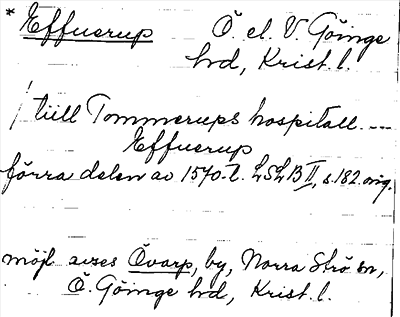 * Effuerup Ö. el. V. Göinge
hd, Krist. l.
/ tiill Tommerups hospitall. ---
Effuerup
förra delen av 1570-t. LSLB II, s. 182 orig.
möjl avses Övarp, by, Norra Strö sn,
Ö. Göinge hd, Krist. l.